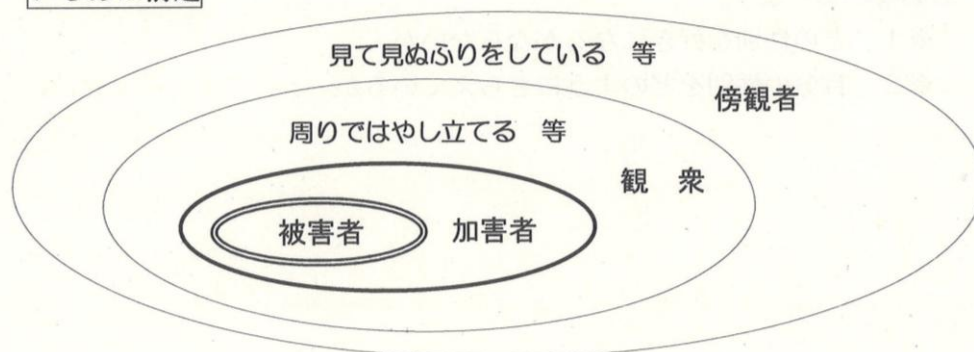 見て見ぬふりをしている 等
傍観者
周りではやし立てる 等
観 衆
被害者
加害者